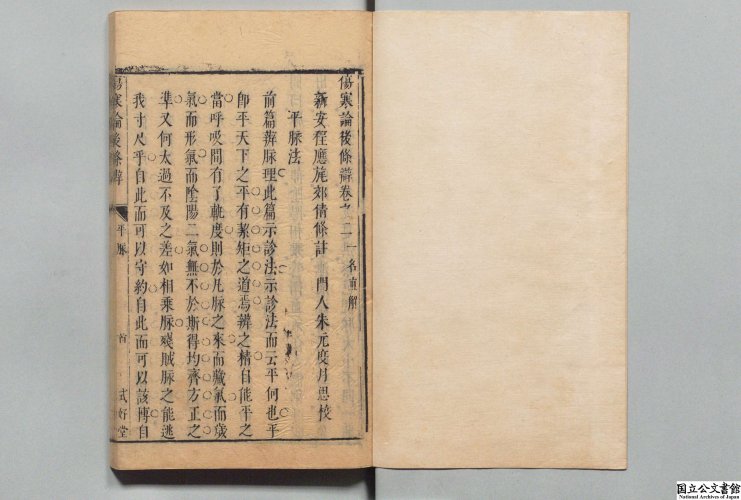 傷寒論後條辯卷之二 一名直解
新安程應旄郊倩條註 門人朱元度月思校
平脉法
前篇辨脉理此篇示診法示診法而云平何也平
卽平天下之平有絜矩之道焉辨之精自能平之
當呼吸間有了軌度則於凡脉之來而藏氣而歲
氣而形氣而陰陽二氣無不於斯得均齊方正之
準又何太過不及之差如相乘脉殘賊脉之能逃
我寸尺乎自此而可以守約自此而可以該博自
傷寒論後條辯 平脉 首 式好堂
国立公文書館
National Archives of Japan